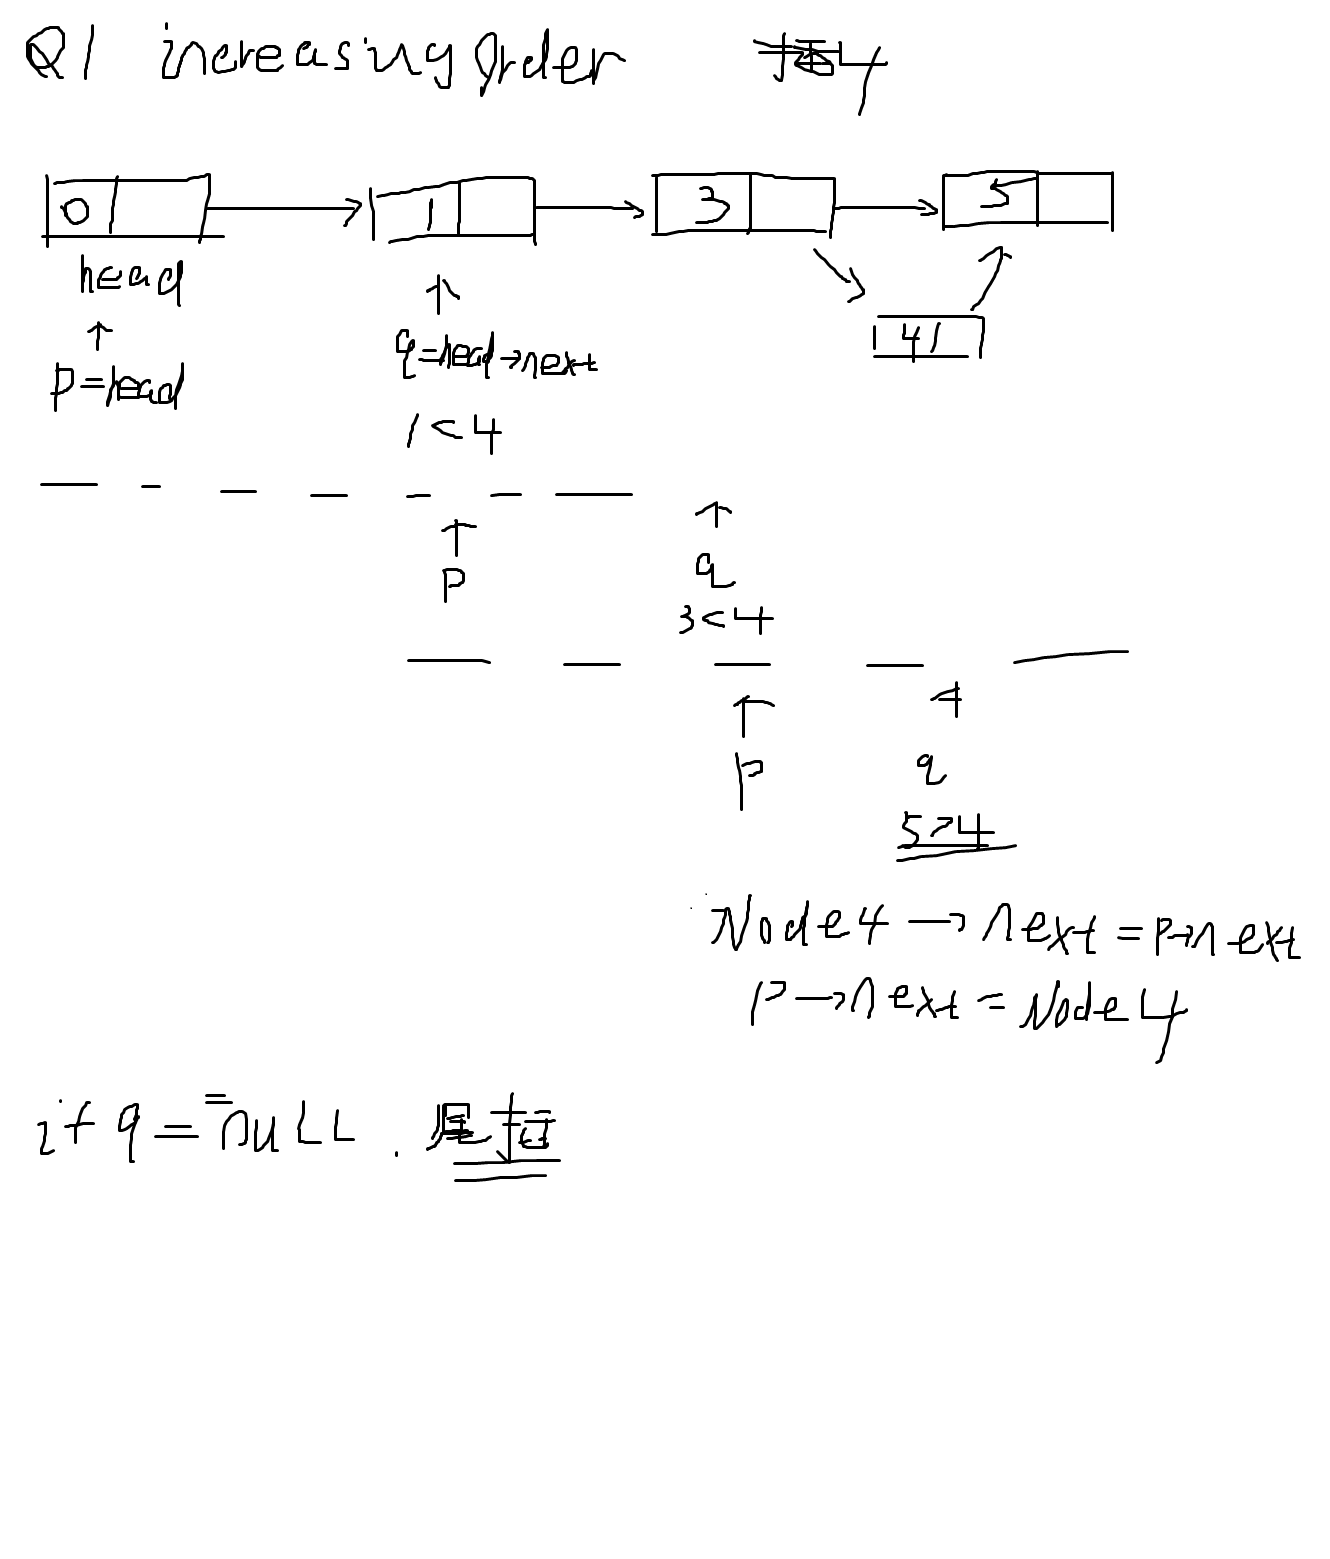 Q1 increasing Order 插4
0 1 3 5
head
4
p=head
q=head→next
1<4
p
q
3<4
p
q
5>4
Node4→next=p→next
p→next=Node4
if q==nuLL. 尾插